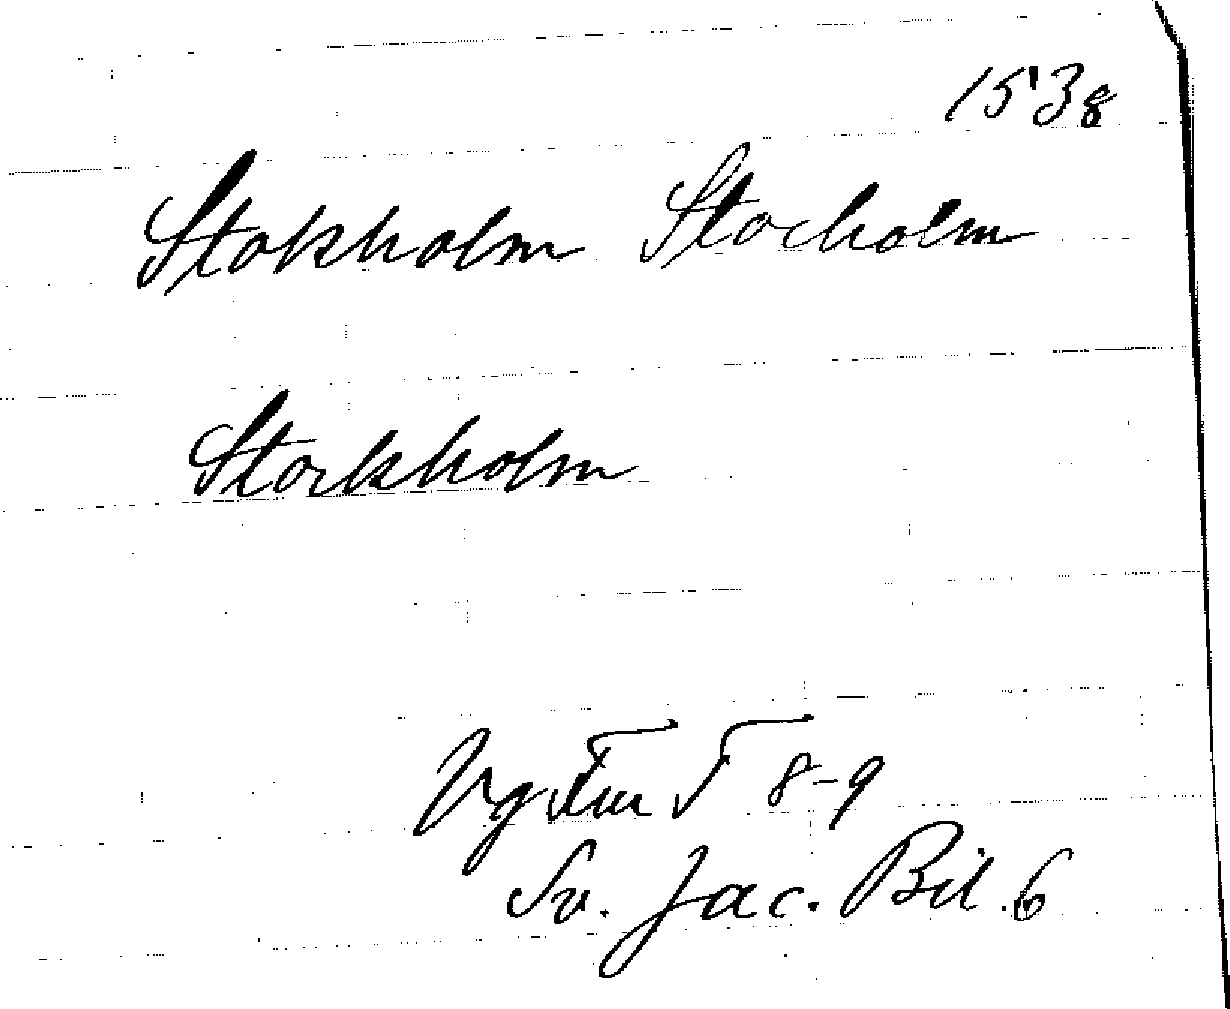 1538
Stokholm Stocholm
Stockholm
Vg Tun T 8-9
Sv. Jac. Bil. 6